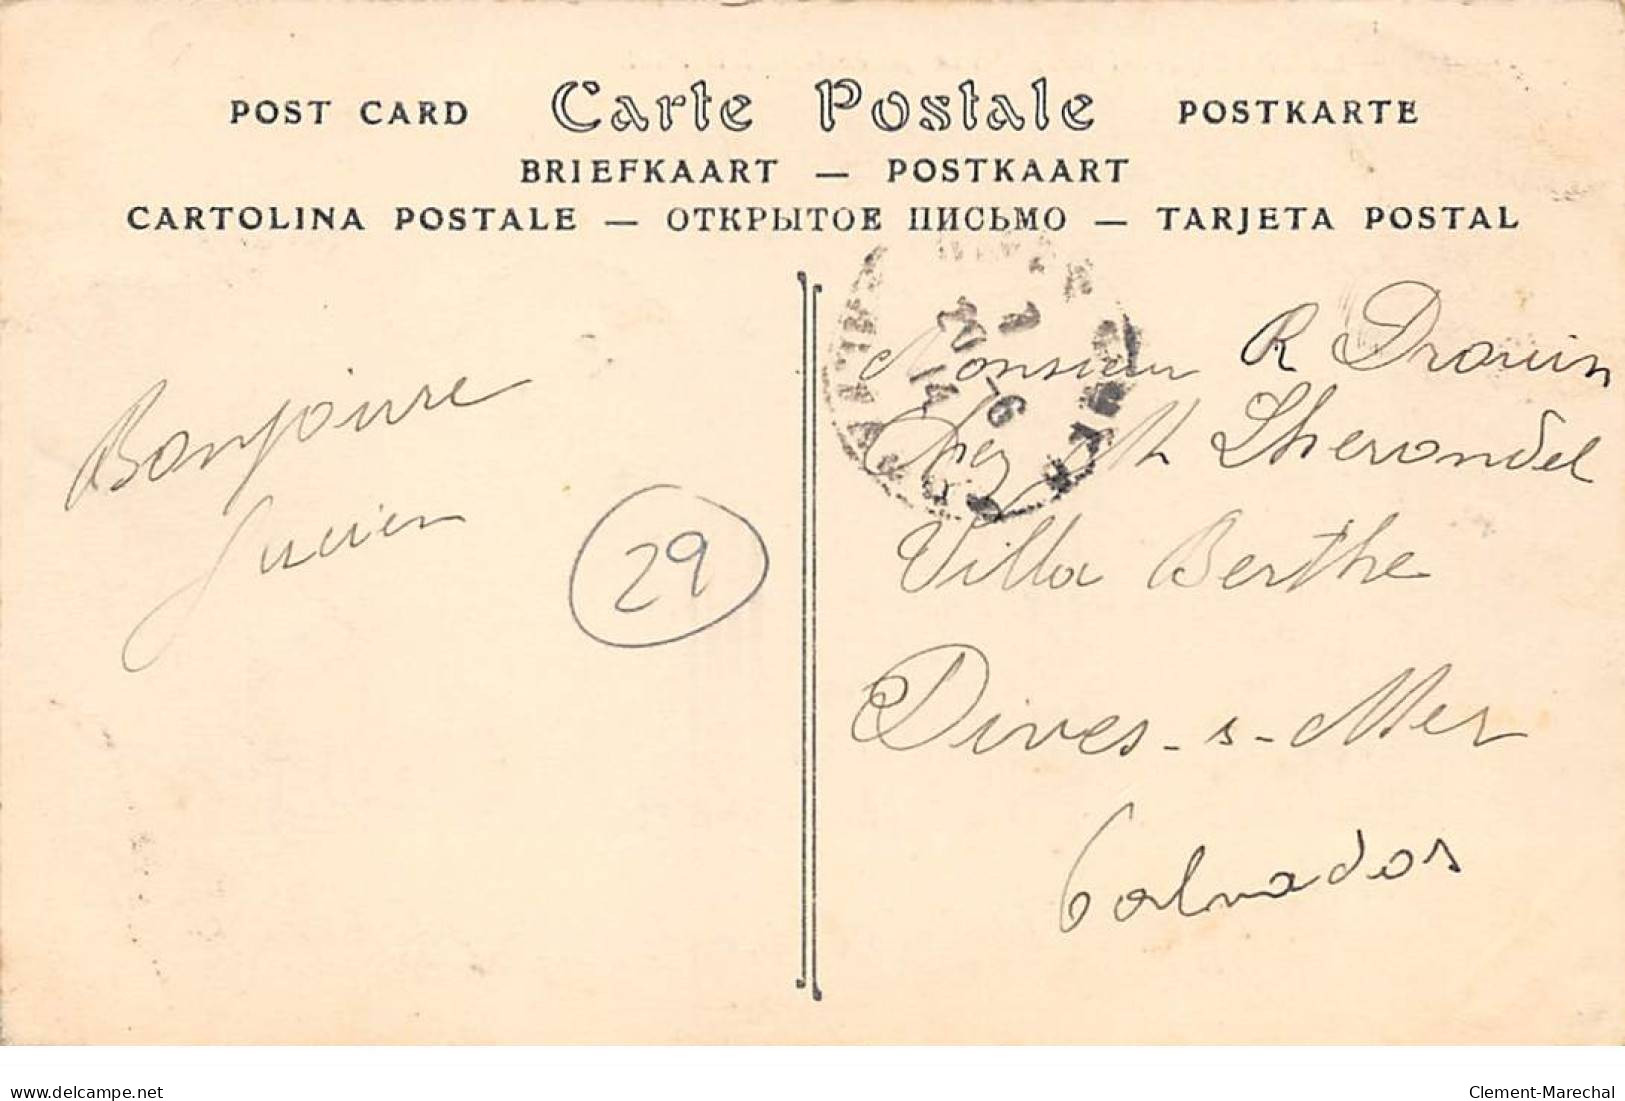 POST CARD Carte Postale POSTKARTE
BRIEFKAART — POSTKAART
CARTOLINA POSTALE — ОТКРЫТОЕ ПИСЬМО — TARJETA POSTAL
Bonjoure
Lucien
29
7 - 6
20
14
Monsieur R Drouin
Chez M Lherondel
Villa Berthe
Dives - s - Mer
Calvados
delcampe.net
Clement-Marechal